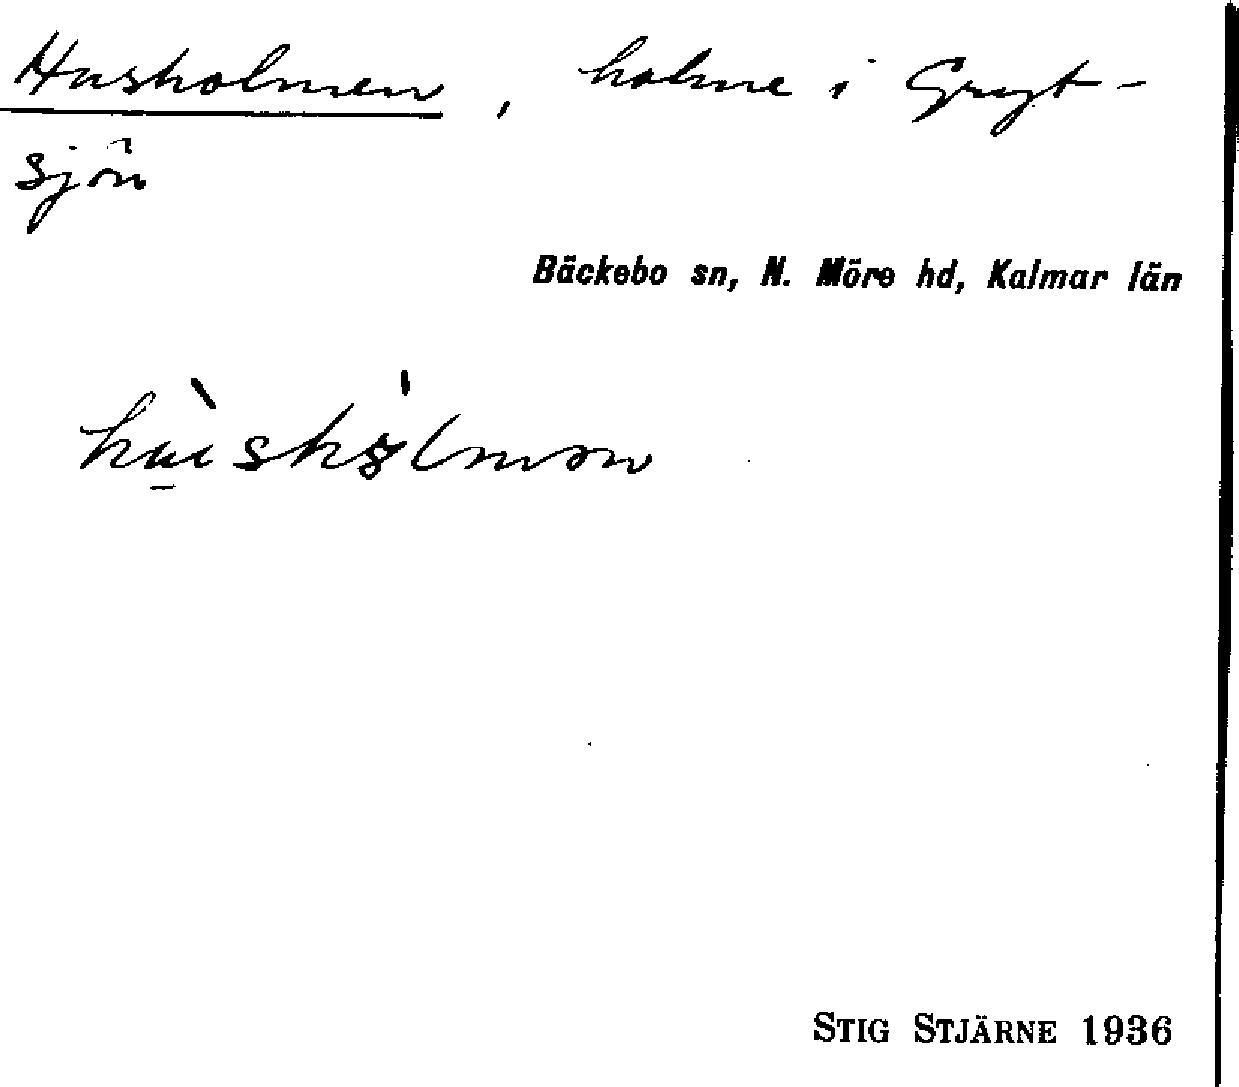 Husholmen, holme i Gryt-
sjön
Bäckebo sn, N. Möre hd, Kalmar län
STIG STJÄRNE 1936